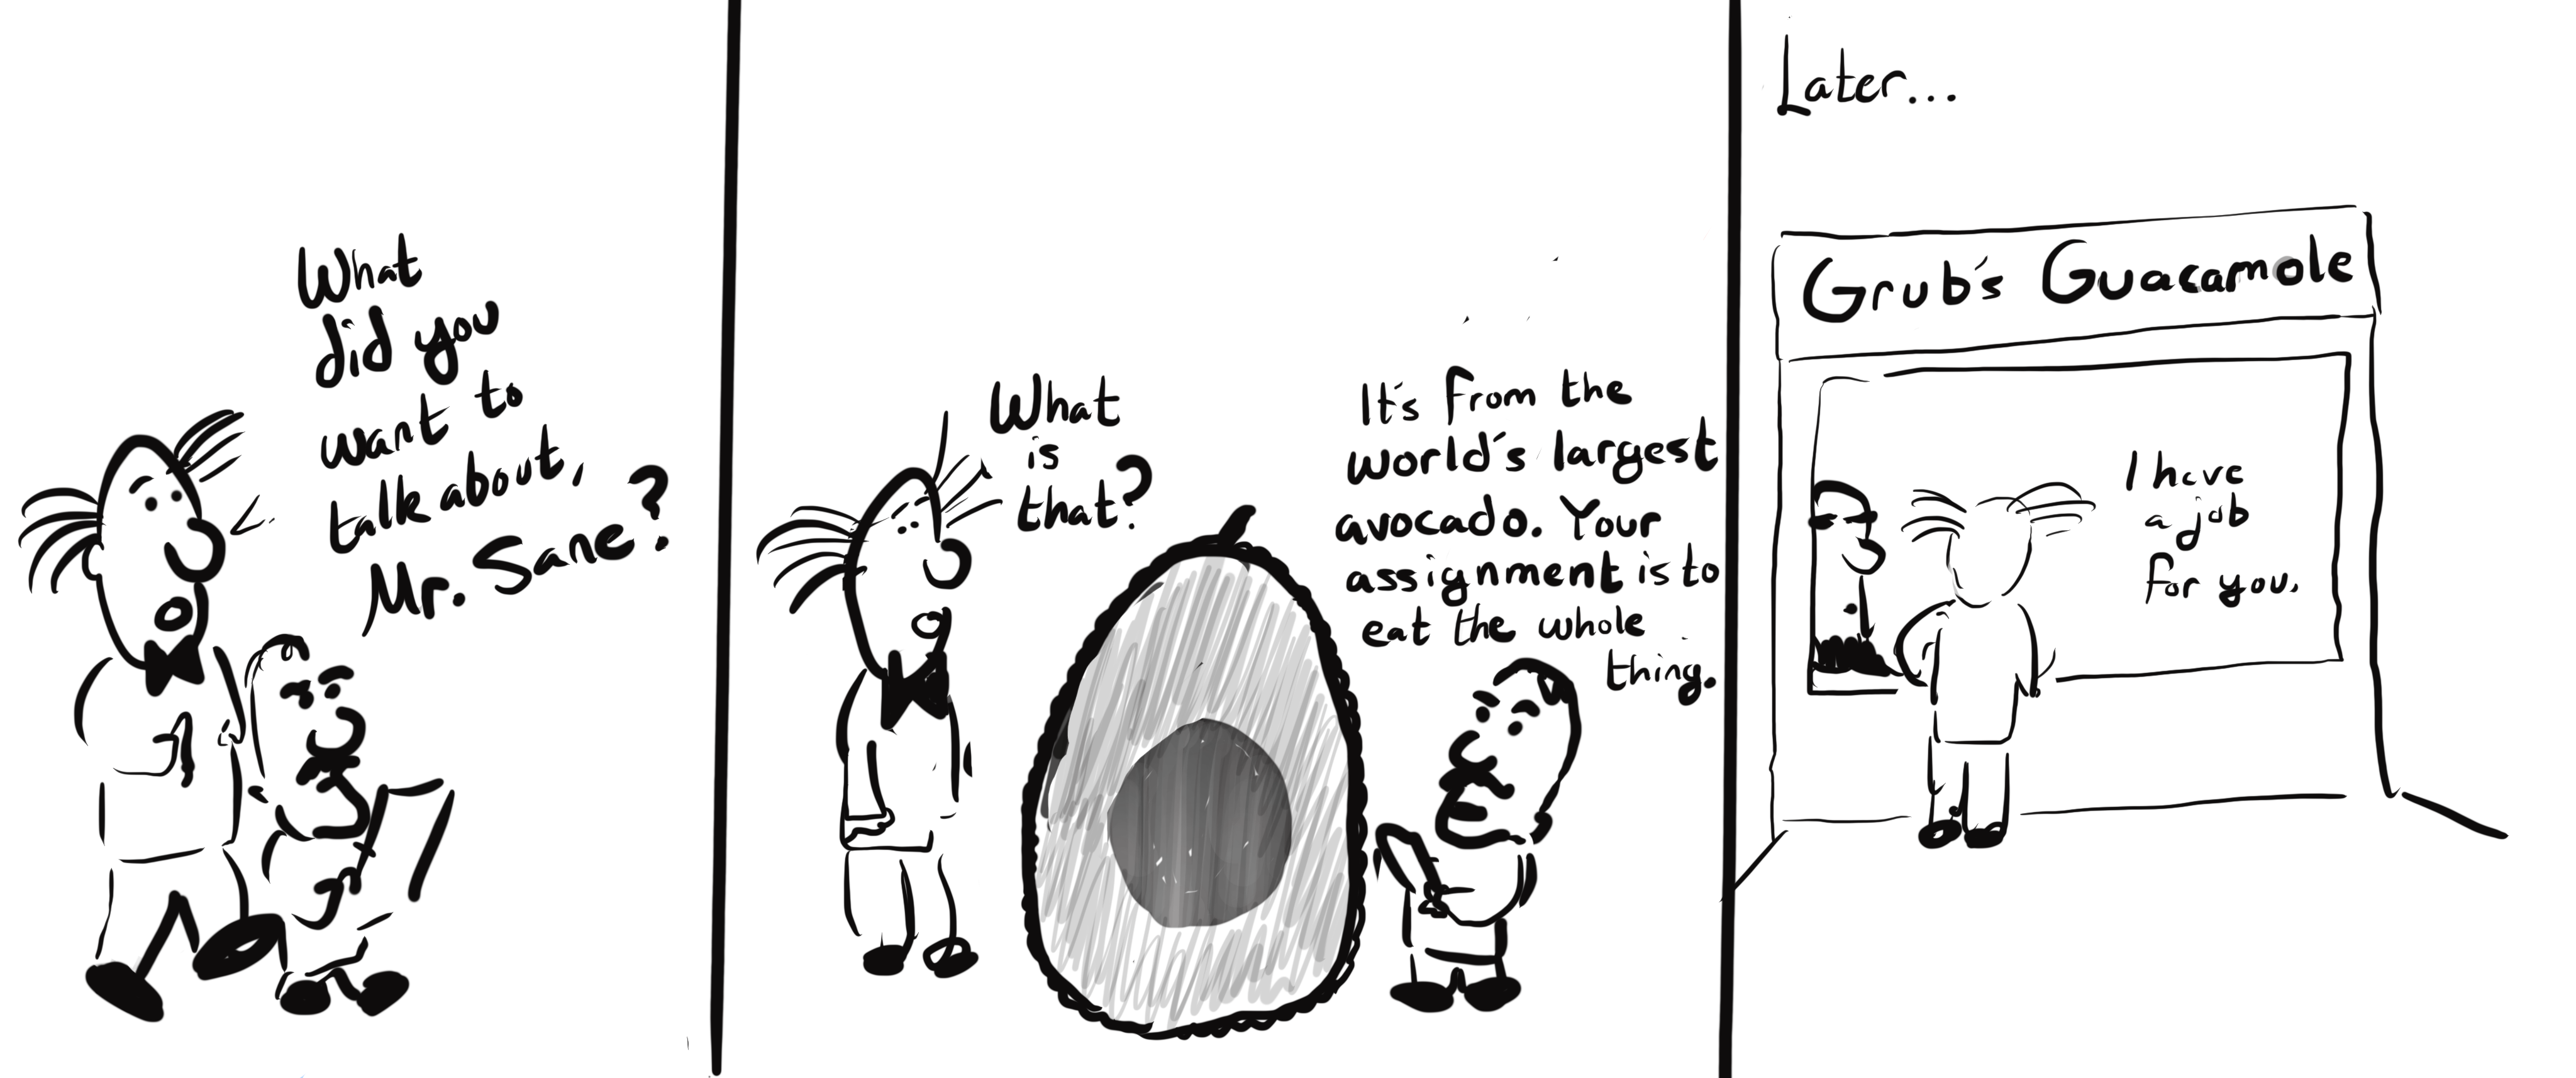 What
did you
want to
talk about,
Mr. Sane?
What
is
that?
It's from the
world's largest
avocado. Your
assignment is to
eat the whole
thing.
Later...
Grub's Guacamole
I have
a job
for you.